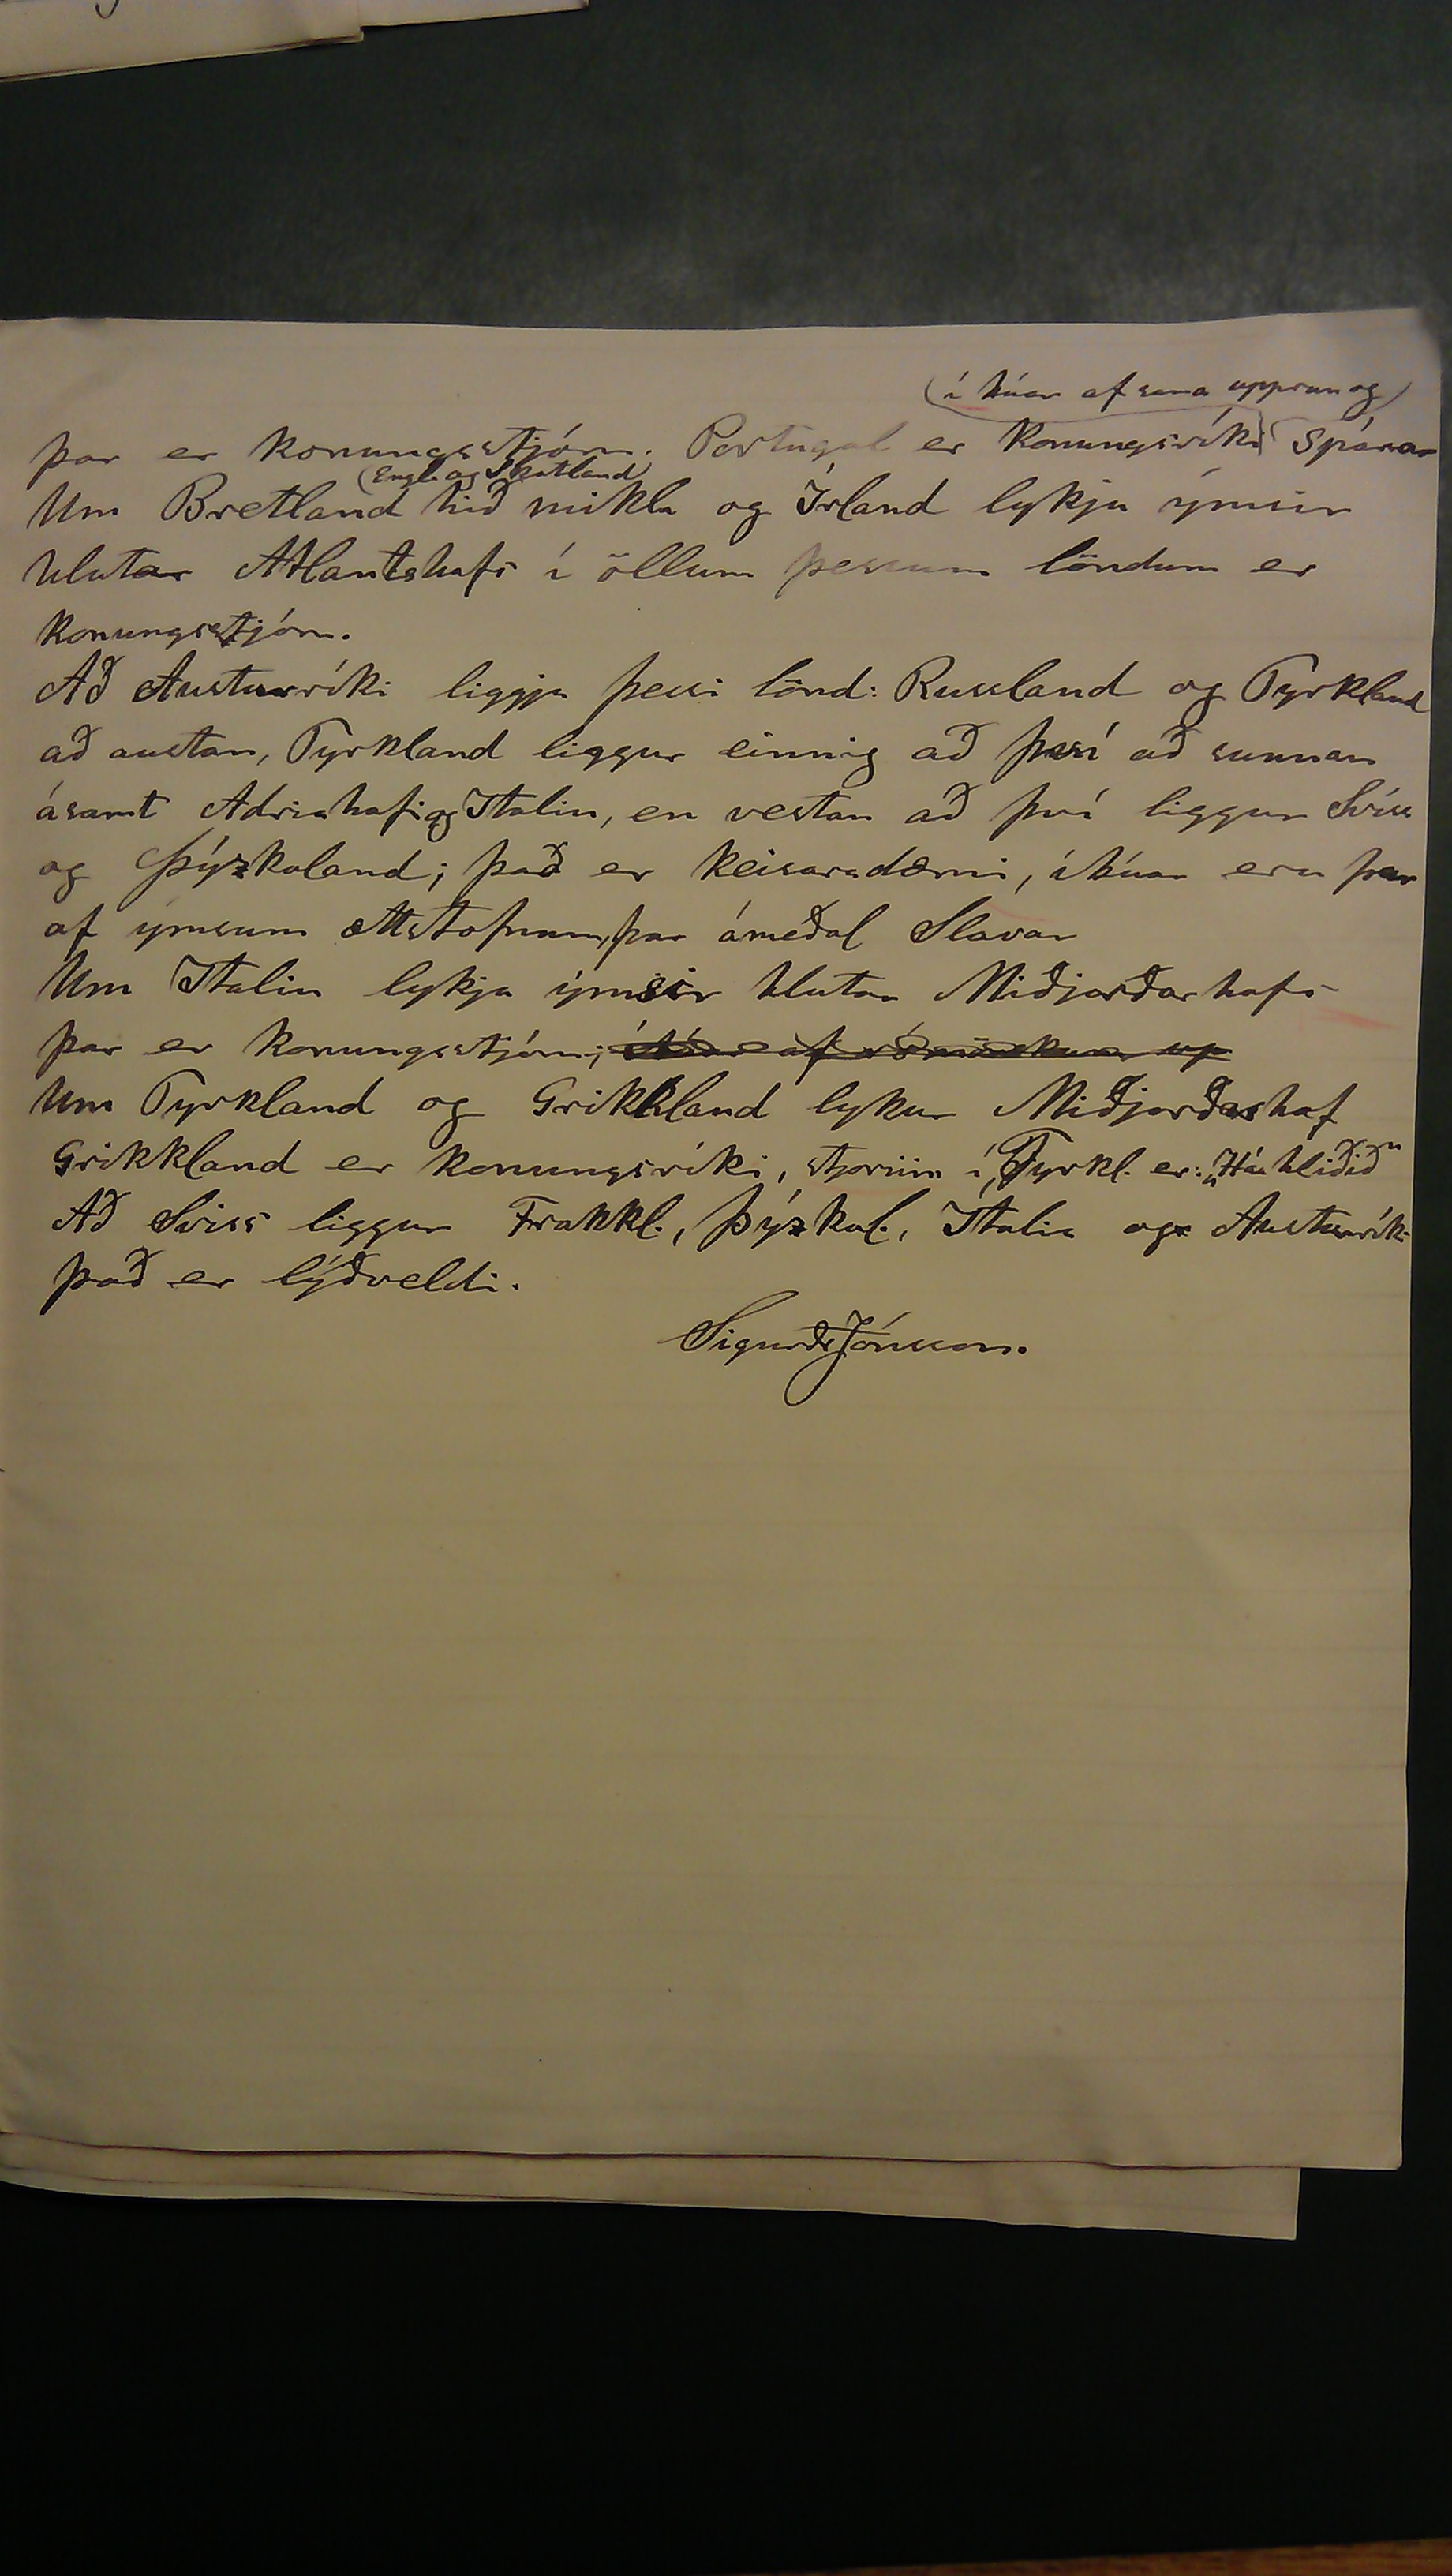 (íbúar af sama uppruna og)
þar er konungsstjórn. Portúgal er konungsríki Spánar
(Engl. og Skotland)
Um Bretland hið mikla og Írland lykja ýmsir
hlutar Atlantshafs í öllum þessum löndum er
konungsstjórn.
Að Austurríki liggja þessi lönd: Russland og Tyrkland
að austan, Tyrkland liggur einnig að því að sunnan
ásamt Adriahafi og Italiu, en vestan að því liggur Sviss
og Þýzkaland; það er keisaradæmi, íbúar eru þar
af ýmsum ættstofnum, þar ámeðal Slavar
Um Italiu lykja ýmsir hlutar Miðjarðarhafs
þar er konungsstjórn; íbúar af rómönskum up
Um Tyrkland og Grikkland lykur Miðjarðarhaf
Grikkland er konungsríki, stjórnin í Tyrkl. er: „Háa hliðið"
Að Sviss liggur Frakkl., Þýzkal., Italia og Austurríki
það er lýðveldi.
Sigurðr Jónsson.